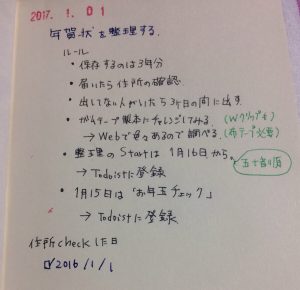 2017. 1. 01
年賀状を整理する.
ルール
・保存するのは3年分
・届いたら住所の確認
・出してない人がいたら3ヶ日の間に出す.
・がんテープ製本にチャレンジしてみる.(Wクリップも)
→Webで色々あるので調べる.(布テープ必要)
・整理のStartは1月16日から. 五十音順
→Todoistに登録
・1月15日は「お年玉チェック」
→Todoistに登録
住所checkした日
2016/1/1